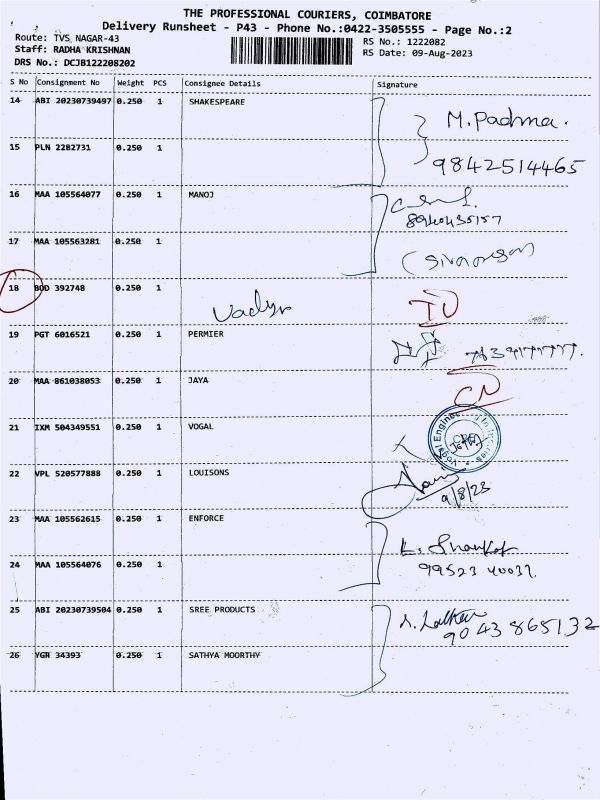 THE PROFESSIONAL COURIERS, COIMBATORE
Delivery Runsheet - P43 - Phone No.:0422-3505555 - Page No.:2
Route: TVS NAGAR-43
RS No.: 1222082
Staff: RADHA KRISHNAN
RS Date: 09-Aug-2023
DRS No.: DCJB122208202
S No Consignment No Weight PCS Consignee Details Signature
14 ABI 20230739497 0.250 1 SHAKESPEARE
M. Padma.
15 PLN 2282731 0.250 1
9842514465
16 MAA 105564077 0.250 1 MANOJ
17 MAA 105563281 0.250 1
18 BOD 392748 0.250 1
19 PGT 6016521 0.250 1 PERMIER
20 MAA 861038053 0.250 1 JAYA
CN
21 IXM 504349551 0.250 1 VOGAL
22 VPL 520577888 0.250 1 LOUISONS
9/8/23
23 MAA 105562615 0.250 1 ENFORCE
24 MAA 105564076 0.250 1
25 ABI 20230739504 0.250 1 SREE PRODUCTS
9043865132
26 YGR 34393 0.250 1 SATHYA MOORTHY